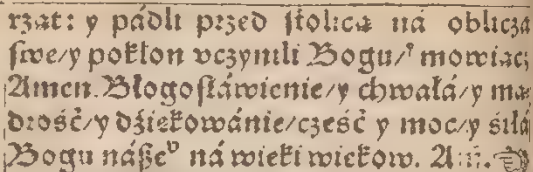 rząt: y pádli przed ſtolicą ná obliczá
ſwe/y pokłon vczynili Bogu/ mowiąc;
Amen. Błogoſłáwienie/y chwałá/y mą
drość/y dźiękowánie/cześć y moc/y śiłá
Bogu náßeᵒ ná wieki wiekow. Am̃.